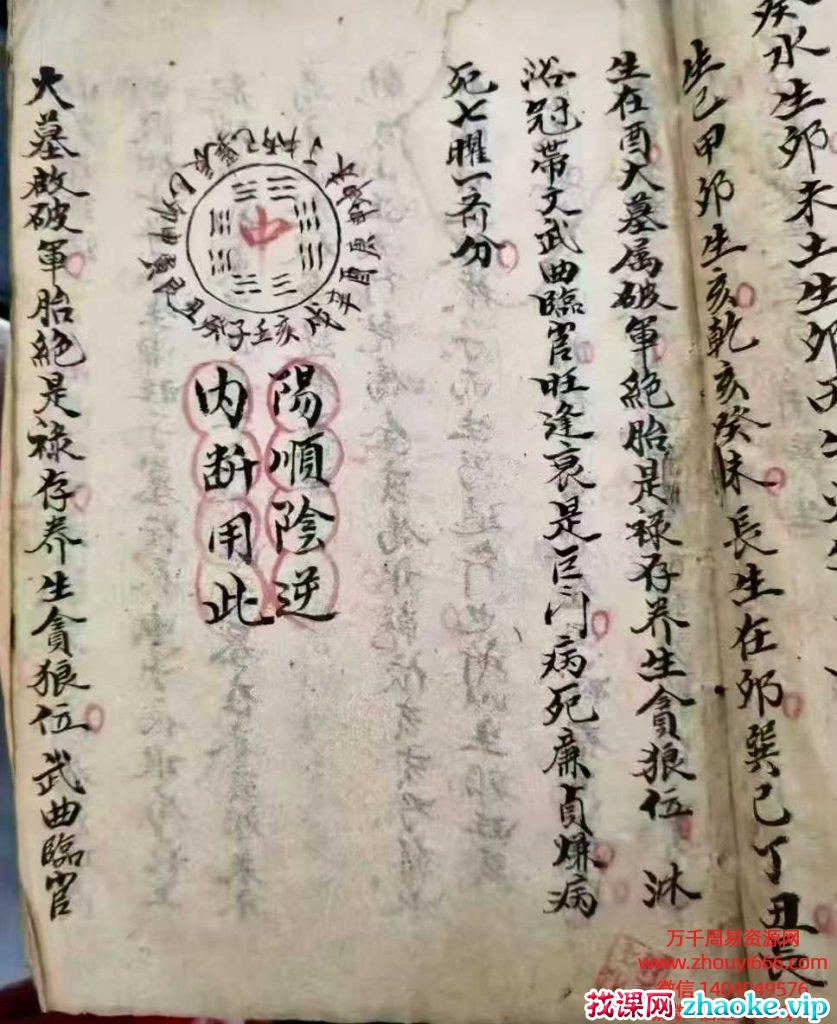 癸水生卯未土生卯
生己甲卯生亥乾亥癸未長生在卯巽己丁丑長
生在酉大墓属破軍絶胎是禄存养生貪狼位 沐
浴冠帶文武曲臨官旺逢衰是巨门病死廉貞嫌病
死七曜一斉分
中
癸子壬亥戌辛酉
陽順陰逆
内断用此
大墓故破軍胎絶是禄存养生貪狼位 武曲臨官
万千周易资源网
www.zhouyi666.com
微信1404049576
找课网zhaoke.vip